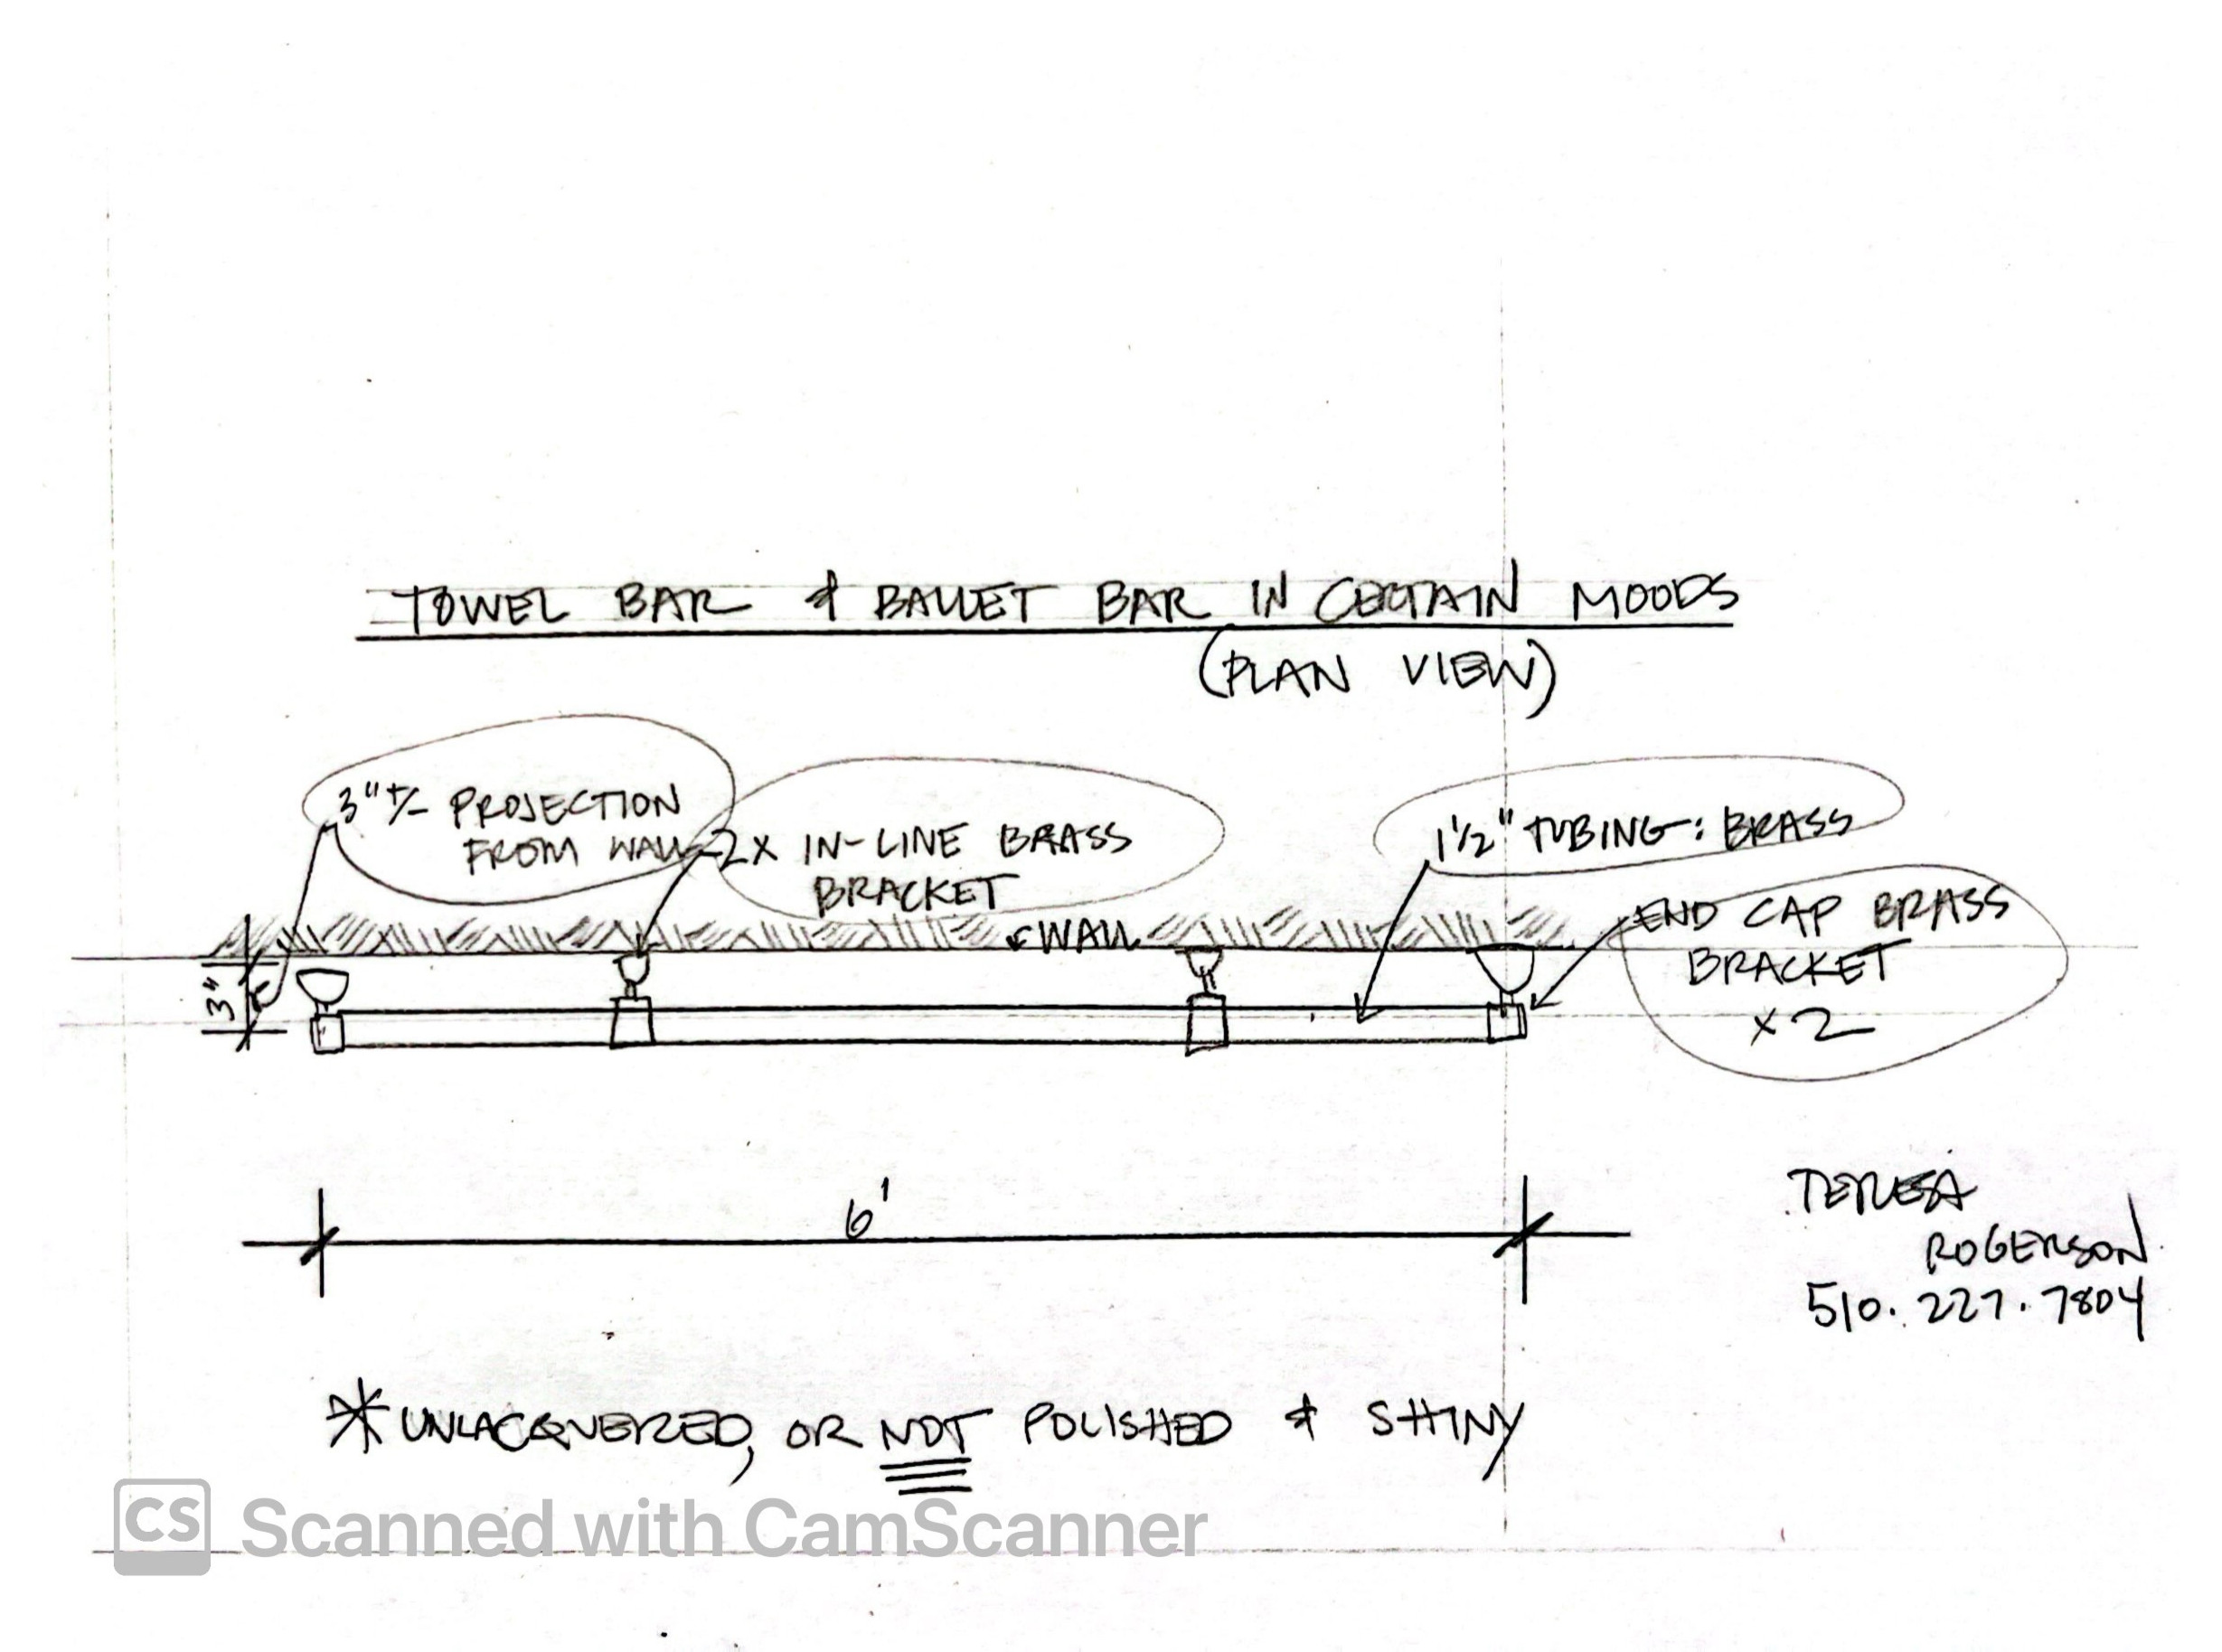 TOWEL BAR & BALLET BAR IN CERTAIN MOODS
(PLAN VIEW)
3" +/- PROJECTION
FROM WALL
2X IN-LINE BRASS
BRACKET
1 1/2" TUBING: BRASS
END CAP BRASS
BRACKET
x2
WALL
3"
6'
TERESA
ROGERSON
510.227.7804
*UNLACQUERED, OR NOT POLISHED & SHINY
CS Scanned with CamScanner